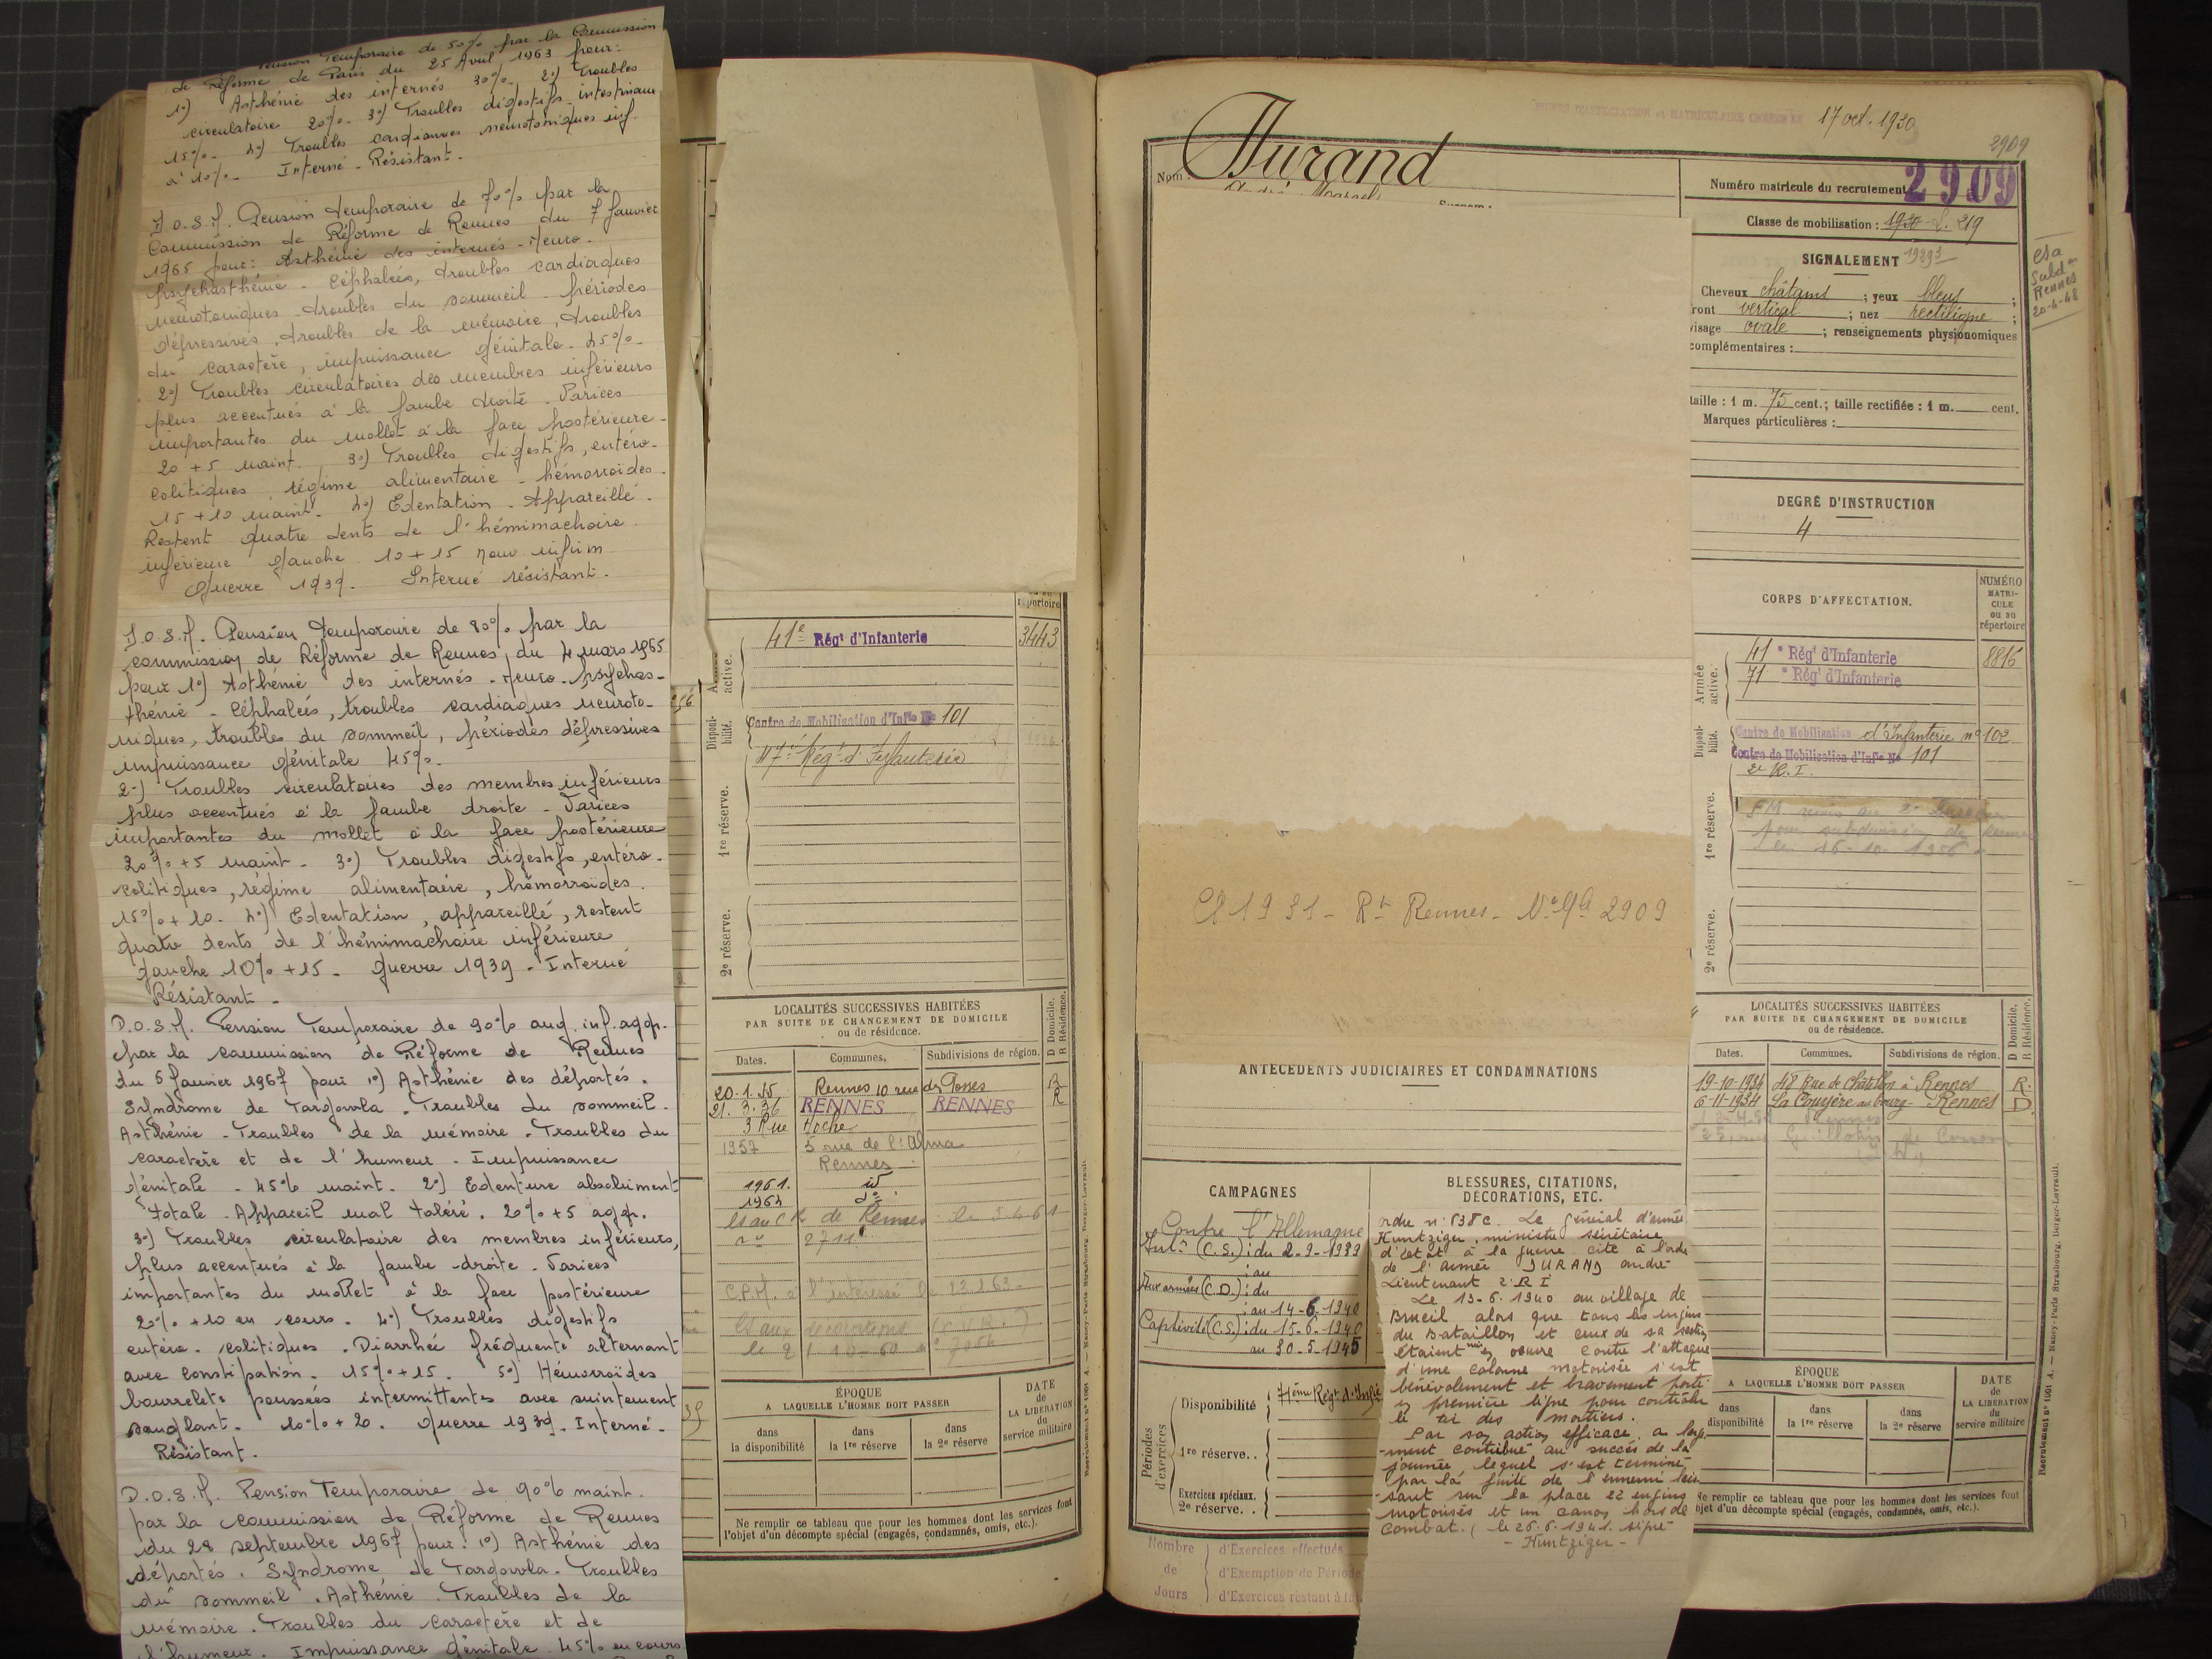 Pension Temporaire de 50% par la Commission
de Réforme de Paris du 25 Avril 1963 pour:
1°) Asthénie des internés 30%. 2°) Troubles
circulatoire 20%. 3°) Troubles digestifs intestinaux
15%. 4°) Troubles cardiaques neurotoniques inf.
à 10%. Interné-Résistant.
D.O.S.A. Pension temporaire de 70% par la
Commission de Réforme de Rennes du 7 Janvier
1965 pour: Asthénie des internés - Neuro-
psychasthénie - Céphalées, troubles cardiaques
neurotoniques - troubles du sommeil - périodes
dépressives, troubles de la mémoire, troubles
du caractère, impuissance génitale - 45%-
2°) Troubles circulatoires des membres inférieurs
plus accentués à la jambe droite. Varices
importantes du mollet à la face postérieure -
20 + 5 maint. 3°) Troubles digestifs, entéro-
colitiques, régime alimentaire - hémorroïdes -
15 + 10 maint. 4°) Edentation - Appareillé -
Restent quatre dents de l'hémimachoire
inférieure gauche 10 + 15 nouv infirm
Guerre 1939 - Interné résistant.
D.O.S.A. Pension temporaire de 80% par la
commission de Réforme de Rennes, du 4 mars 1965
pour 1°) Asthénie des internés - neuro-psychas-
thénie - Céphalées, troubles cardiaques neuroto-
niques, troubles du sommeil, périodes dépressives
impuissance génitale 45%.
2°) Troubles circulatoires des membres inférieurs
plus accentués à la jambe droite - Varices
importantes du mollet à la face postérieure
20% + 5 maint - 3°) Troubles digestifs, entéro-
colitiques, régime alimentaire, hémorroïdes.
15% + 10. 4°) Edentation, appareillé, restent
quatre dents de l'hémimachoire inférieure
gauche 10% + 15 - Guerre 1939 - Interné
Résistant -
D.O.S.A. Pension Temporaire de 90% aug. inf. agg.
par la commission de Réforme de Rennes
du 5 janvier 1967 pour 1°) Asthénie des déportés.
Syndrome de Targowla. Troubles du sommeil.
Asthénie - Troubles de la mémoire. Troubles du
caractère et de l'humeur. Impuissance
génitale - 45% maint. 2°) Edenture absolument
totale. Appareil mal toléré. 20% + 5 agg.
3°) Troubles circulatoire des membres inférieurs,
plus accentués à la jambe droite. Varices
importantes du mollet à la face postérieure
20% + 10 en cours. 4°) Troubles digestifs
entéro-colitiques. Diarrhée fréquente alternant
avec constipation. 15% + 15. 5°) Hémorroïdes
bourrelets poussées intermittentes avec suintement
sanglant. 10% + 20. Guerre 1939. Interné-
Résistant.
D.O.S.A. Pension Temporaire de 90% maint.
par la commission de Réforme de Rennes
du 28 septembre 1967 pour: 1°) Asthénie des
déportés. Syndrome de Targowla. Troubles
du sommeil. Asthénie. Troubles de la
mémoire. Troubles du caractère et de
l'humeur. Impuissance génitale 45% en cours
répertoire
active.
41e Régt d'Infanterie 3443
Disponi-
bilité.
Centre de Mobilisation d'Infie No 101
117e Régt d'Infanterie
1re réserve.
2e réserve.
LOCALITÉS SUCCESSIVES HABITÉES
PAR SUITE DE CHANGEMENT DE DOMICILE
ou de résidence.
D Domicile.
R Résidence.
Dates. Communes, Subdivisions de région.
20-1-35 Rennes 10 rue des Fosses R
21.3.36 RENNES RENNES R
3 Rue Hoche
1957 5 rue de l'Alma
Rennes
1961. id
1963 d°
de Rennes le
C.P.M. à l'intéressé le
ÉPOQUE
A LAQUELLE L'HOMME DOIT PASSER
DATE
de
LA LIBÉRATION
du
service militaire
dans
la disponibilité
dans
la 1re réserve
dans
la 2e réserve
Ne remplir ce tableau que pour les hommes dont les services font
l'objet d'un décompte spécial (engagés, condamnés, omis, etc.).
FICHES D'AFFECTATION et MATRICULAIRE CRÉÉES LE 17 oct. 1930
2909
Nom : Durand
André Marcel
Numéro matricule du recrutement 2909
Classe de mobilisation : 1930
SIGNALEMENT
Cheveux châtains ; yeux bleus ;
ront vertical ; nez rectiligne ;
visage ovale ; renseignements physionomiques
complémentaires :
taille : 1 m. 75 cent.; taille rectifiée : 1 m. cent.
Marques particulières :
Subd on
Rennes
20-4-48
DEGRÉ D'INSTRUCTION
4
CORPS D'AFFECTATION.
NUMÉRO
MATRI-
CULE
ou au
répertoire
Armée
active.
41e Régt d'Infanterie 8816
71e Régt d'Infanterie
Disponi-
bilité.
Centre de Mobilisation d'Infanterie n° 102
Centre de Mobilisation d'Infie No 101
2e R.I.
1re réserve.
2e réserve.
Cl 1931 - Rt Rennes - No Mle 2909
ANTÉCÉDENTS JUDICIAIRES ET CONDAMNATIONS
LOCALITÉS SUCCESSIVES HABITÉES
PAR SUITE DE CHANGEMENT DE DOMICILE
ou de résidence.
D Domicile.
R Résidence.
Dates. Communes. Subdivisions de région.
19-10-1934 48 Rue de Châtillon à Rennes R.
6-11-1934 La Couyère au bourg - Rennes D.
CAMPAGNES
Contre l'Allemagne
Intre (C.S.) : du 2-9-1939
: au
Aux armées (C.D.) : du
: au 14-6-1940
Captivité (C.S.) : du 15-6-1940
au 30-5-1945
BLESSURES, CITATIONS,
DÉCORATIONS, ETC.
ordre n° 538 c. Le général d'armée
Huntziger, ministre secrétaire
d'état à la guerre cite à l'ordre
de l'armée DURAND andré
Lieutenant 2e RI
Le 13-6-1940 au village de
Brueil alors que tous les engins
du Bataillon et ceux de sa section
étaient mis en oeuvre contre l'attaque
d'une colonne motorisée s'est
bénévolement et bravement porté
en première ligne pour contrôler
le tir des mortiers.
Par son action efficace, a large
-ment contribué au succès de la
journée, lequel s'est terminé
par la fuite de l'ennemi lais
-sant sur la place 22 engins
motorisés et un canon hors de
combat. (le 26.6.1941. signé
- Huntziger -
Périodes
d'exercices
Disponibilité 71ème Régt d'Infie
1re réserve. .
Exercices spéciaux.
2e réserve. .
Nombre
de
Jours
d'Exercices effectués
d'Exemption de Période
d'Exercices restant à fai
ÉPOQUE
A LAQUELLE L'HOMME DOIT PASSER
DATE
de
LA LIBÉRATION
du
service militaire
dans
disponibilité
dans
la 1re réserve
dans
la 2e réserve
Ne remplir ce tableau que pour les hommes dont les services font
objet d'un décompte spécial (engagés, condamnés, omis, etc.).
Recrutement n° 1001 A. — Nancy-Paris-Strasbourg, Berger-Levrault.